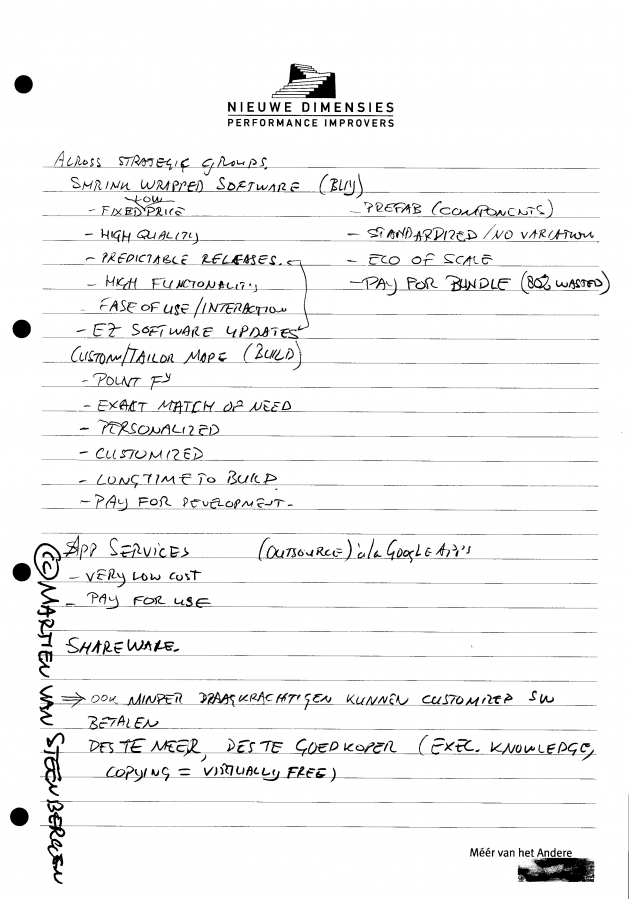 NIEUWE DIMENSIES
PERFORMANCE IMPROVERS
ACROSS STRATEGIC GROUPS.
SHRINK WRAPPED SOFTWARE (BUY)
LOW
- FIXED PRICE
- HIGH QUALITY
- PREDICTABLE RELEASES.
- HIGH FUNCTIONALITY
EASE OF USE/INTERACTION
- EZ SOFTWARE UPDATES
- PREFAB (COMPONENTS)
- STANDARDIZED/NO VARIATION.
- ECO OF SCALE
- PAY FOR BUNDLE (80% WASTED)
CUSTOM/TAILOR MADE (BUILD)
- POINT
- EXACT MATCH OF NEED
- PERSONALIZED
- CUSTOMIZED
- LONG TIME TO BUILD
- PAY FOR DEVELOPMENT-
APP SERVICES (OUTSOURCE) à la GOOGLE API's
- VERY LOW COST
- PAY FOR USE
SHAREWARE.
⇒ OOK MINDER DRAAGKRACHTIGEN KUNNEN CUSTOMIZED SW
BETALEN
DES TE MEER, DES TE GOEDKOPER (EXEC. KNOWLEDGE,
COPYING = VIRTUALLY FREE)
(CC) MARTIEN VAN STEENBERGEN
Méér van het Andere